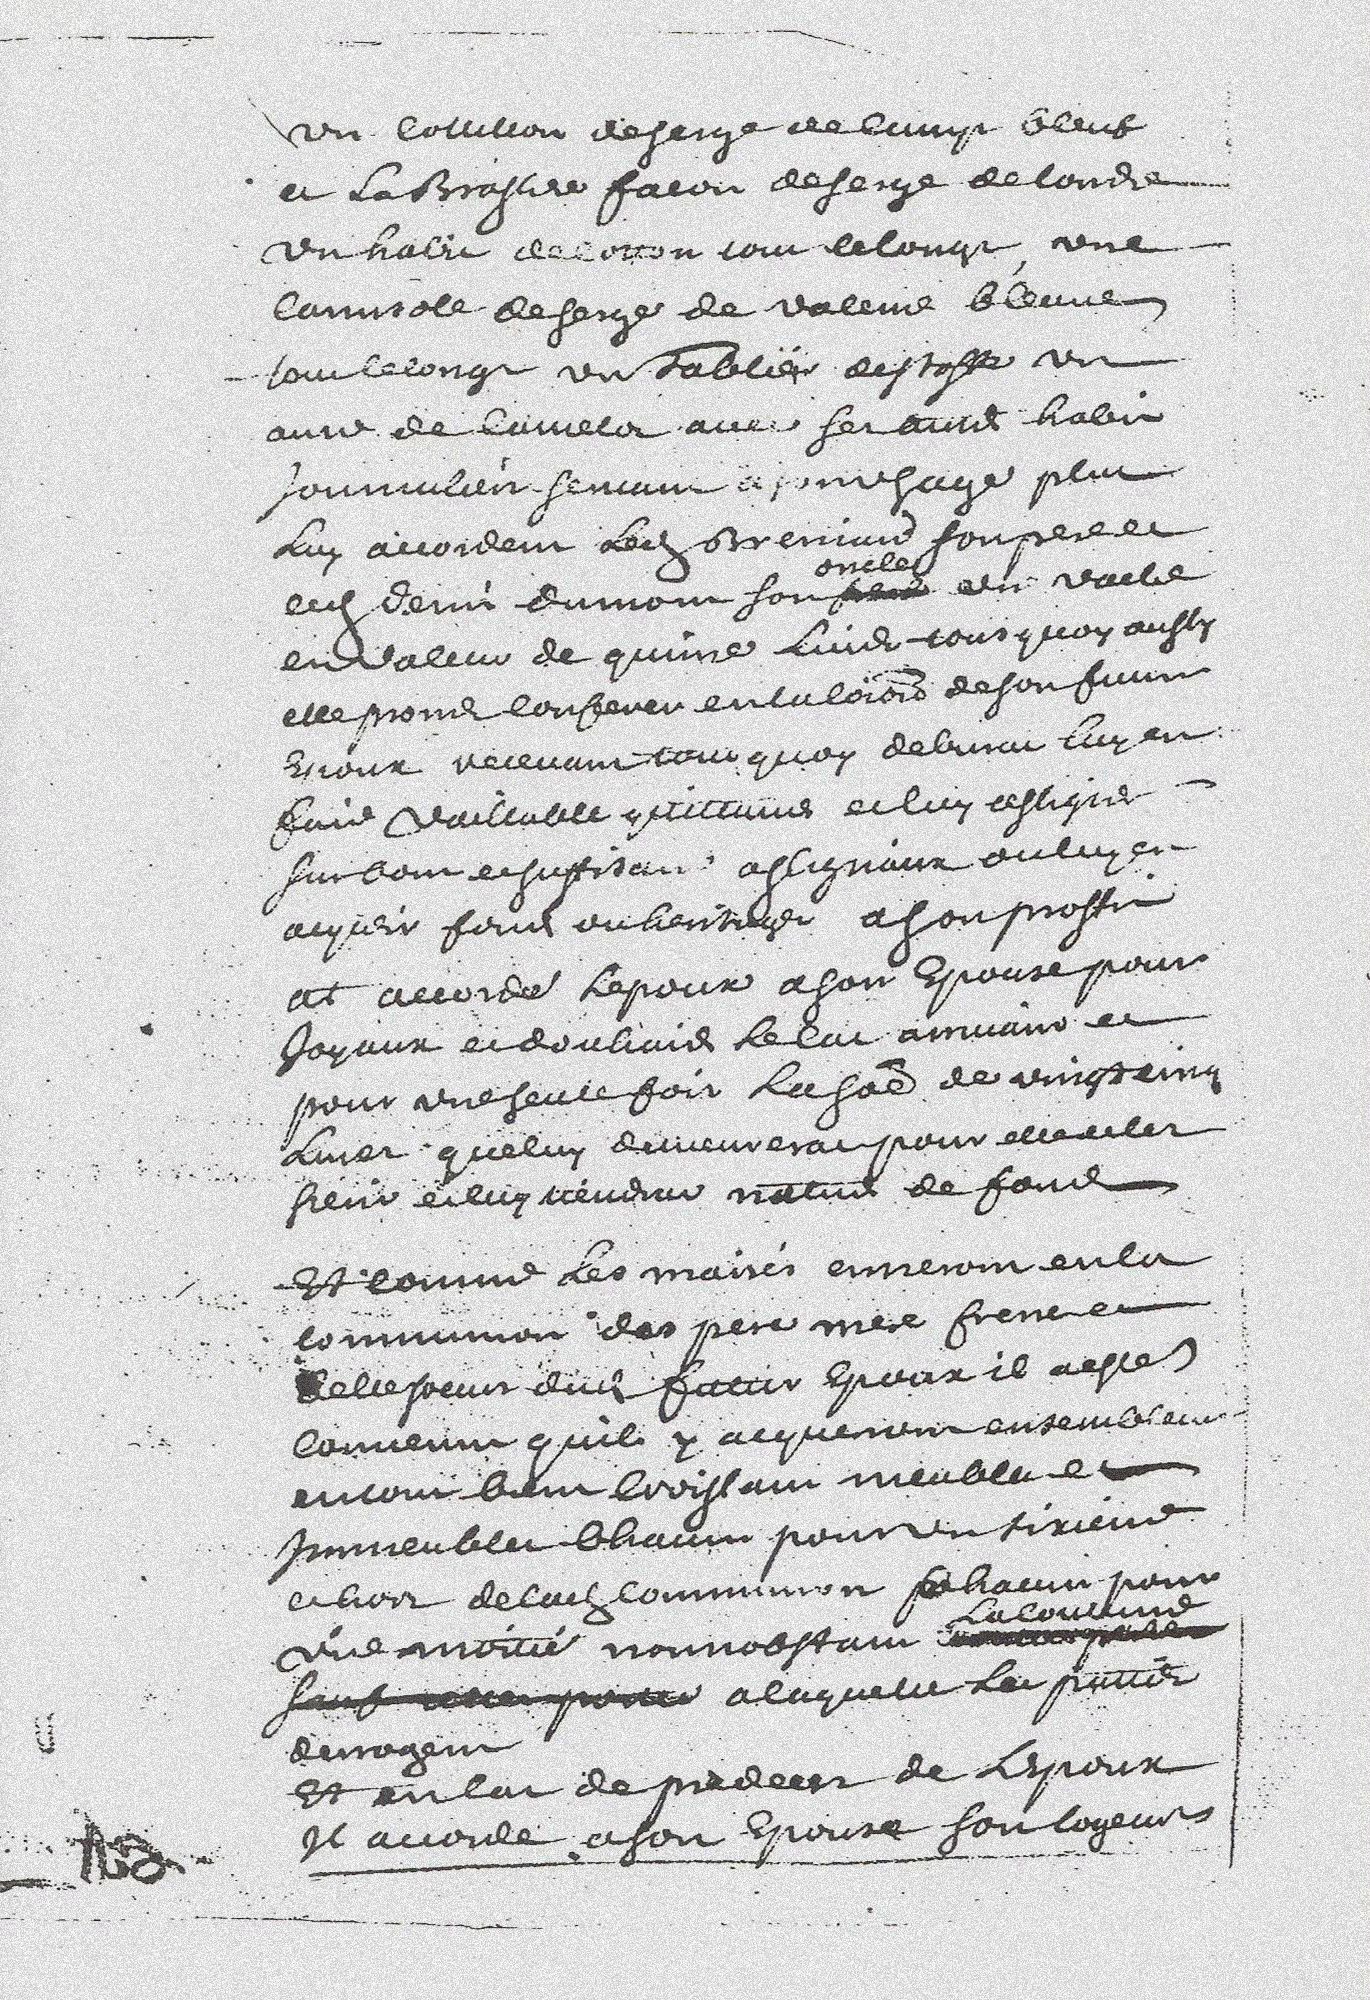 un cotillon de serge de camp bleuf
et La Brassiere facon de serge de londre
un habit de cotton tout le longt, une
camisole de serge de valence bleuue
tout le longt un Tablier destoffe un
autre de camelot auec ses autres habits
Journaliers seruant a son usage plus
Luy accordent Led son pere et
led denis dumont son oncle une vache
en valeur de quinze Liures tous quoy aussy
elle promet conferer en la de son futur
Epoux receuant tout quoy debura luy en
faire vaillable quittance et luy assigner
sur bons et suffisans assignaux ou luy en
acquerir fond ou heritages a son proffit
at accordé Lepoux a son Epouse pour
Joyaux et Le cas arriuant et
pour une seule fois La soe de vingt cinq
Liures que luy demeurerat pour elle et les
siens et luy tiendra nature de fond
Et comme Les mariés entreront en la
communion des pere mere frere et
belle soeur dud futur Epoux il a esté
conuenu quils y acquerront ensemblement
en tous biens croissans meubles et
Jmmeubles chacun pour un sixieme
et hors de lad communion chacun pour
une moitié nonnobstant La coutume
a laquelle Les parties
derrogent
Et en cas de predeces de Lepoux
Jl accorde a son Epouse son logement